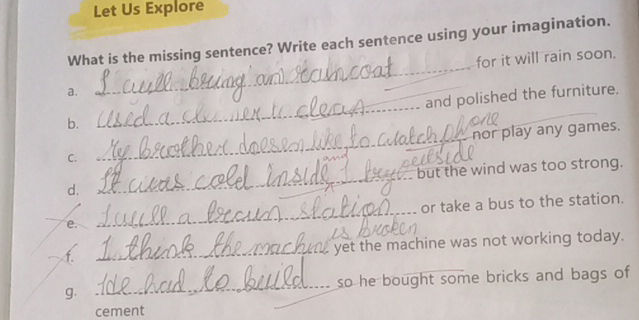 Let Us Explore
What is the missing sentence? Write each sentence using your imagination.
a. I will bring an raincoat for it will rain soon.
b. Used a to clean and polished the furniture.
c. My brother doesen like to watch phone nor play any games.
d. It was cold inside and I outside but the wind was too strong.
e. I will a station or take a bus to the station.
f. I think the machine is broken yet the machine was not working today.
g. He had to build so he bought some bricks and bags of
cement